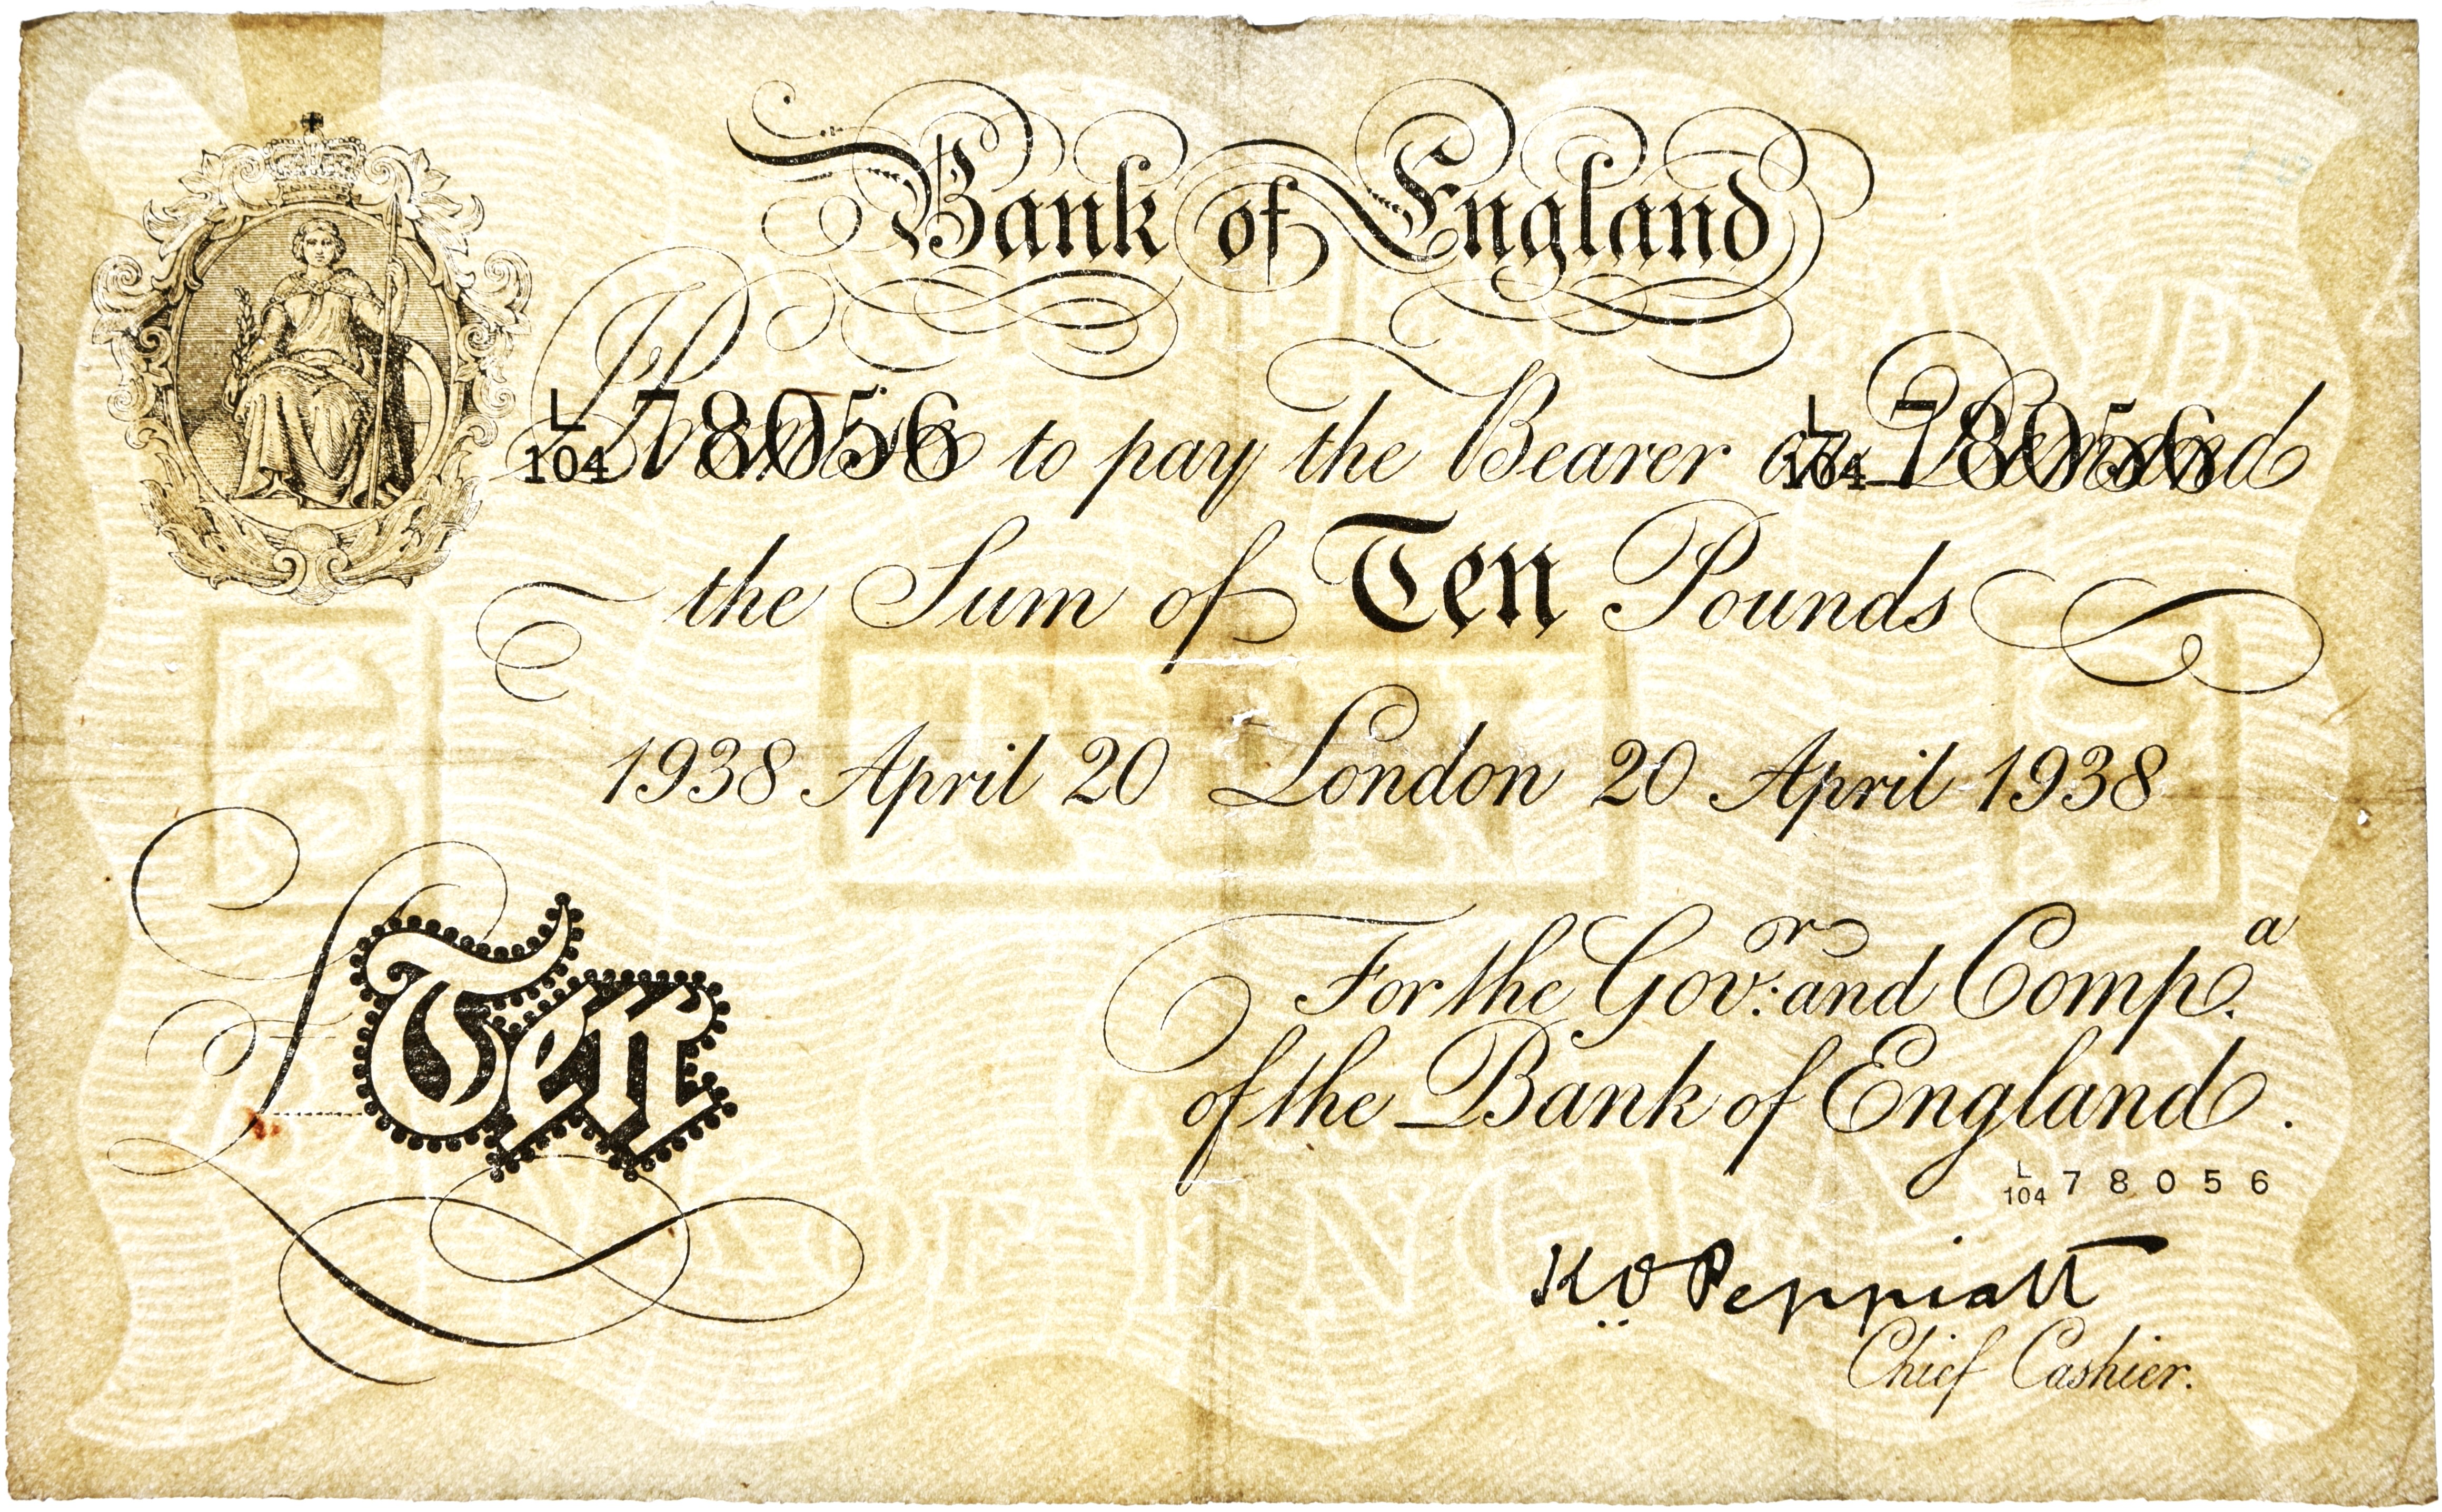 Bank of England
L/104 78056 Promise to pay the Bearer on Demand L/104 78056
the Sum of Ten Pounds
1938 April 20 London 20 April 1938
For the Gov:r and Comp.a
of the Bank of England.
£ Ten
L/104 78056
K O Peppiatt
Chief Cashier.
TEN